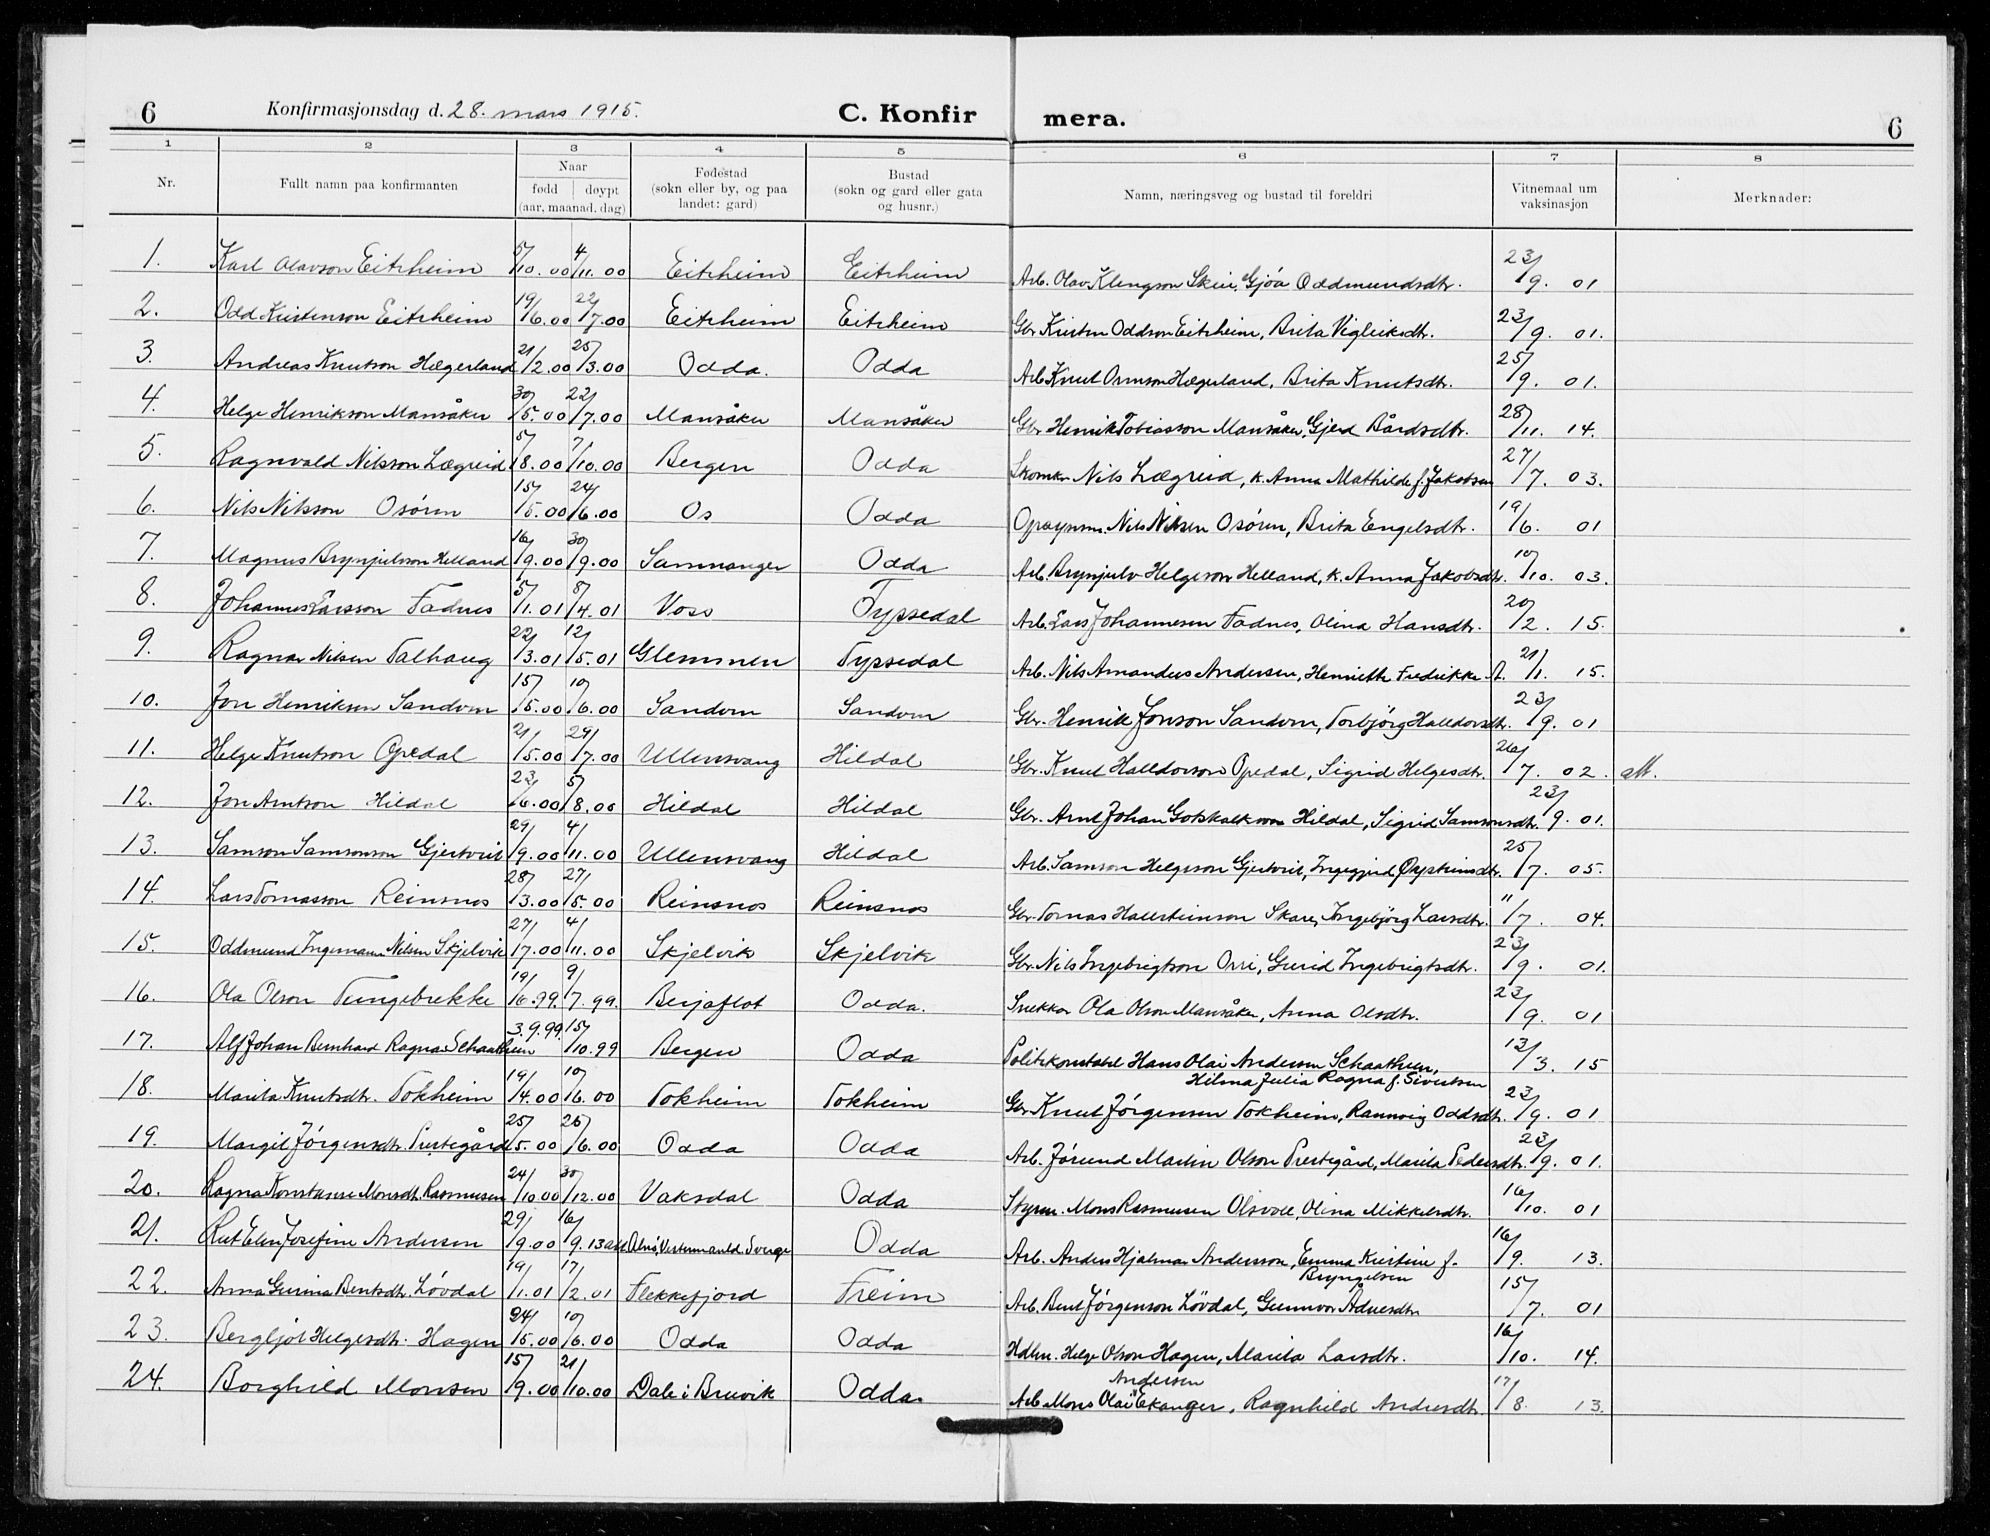 6 Konfirmasjonsdag d. 28. mars 1915. C. Konfir mera. 6
1 2 3 4 5 6 7 8
Nr. Fullt namn paa konfirmanten Naar fødd døypt (aar, maanad, dag) Fødestad (sokn eller by, og paa landet: gard) Bustad (sokn og gard eller gata og husnr.) Namn, næringsveg og bustad til foreldri Vitnemaal um vaksinasjon Merknader:
1. Karl Olavson Eitrheim 5/10.00 4/11.00 Eitrheim Eitrheim Arb. Olav Klengson Skur, Gjøa Oddmundsdtr. 23/9. 01
2. Odd Kristenson Eitrheim 19/6.00 22/7.00 Eitrheim Eitrheim Gbr. Kristen Oddson Eitrheim, Brita Vigleiksdtr. 23/9. 01.
3. Andreas Knutson Hægerland 21/2.00 25/3.00 Odda. Odda Arb. Knut Ormson Hægerland, Brita Knutsdtr. 25/9. 01.
4. Helge Henrikson Mannsåker 30/5.00 22/7.00 Mannsåker Mannsåker Gbr. Henrik Tobiasson Mannsåker, Gjerd Bårdsdtr. 28/11. 14.
5. Ragnvald Nilsson Lægreid 5/8.00 7/10.00 Bergen Odda Skomkr. Nils Lægreid, k. Anna Mathilde f. Jakobsen 27/7. 03.
6. Nils Nilsson Osøren 15/5.00 24/6.00 Os Odda Opsynsm. Nils Nilsen Osøren, Brita Engelsdtr. 19/6. 01
7. Magnus Brynjulvson Helland 16/9.00 30/9.00 Samnanger Odda Arb. Brynjulv Helgeson Helland, k. Anna Jakobsdtr. 10/10. 03.
8. Johannes Larsson Fadnes 5/1.01 8/4.01 Voss Tyssedal Arb. Lars Johannesen Fadnes, Olina Hansdtr. 20/2. 15.
9. Ragnar Nilsen Talhaug 22/3.01 12/5.01 Glemmen Tyssedal Arb. Nils Amandus Andersen, Henriette Fredrikke A. 21/1. 15.
10. Jon Henriksen Sandven 15/5.00 10/6.00 Sandven Sandven Gbr. Henrik Jonson Sandven, Torbjörg Halldorsdtr. 23/9. 01
11. Helge Knutson Opedal 21/5.00 29/7.00 Ullensvang Hildal Gbr. Knut Halldorson Opedal, Sigrid Helgesdtr. 26/7. 02. att.
12. Jon Arntson Hildal 23/6.00 5/8.00 Hildal Hildal Gbr. Arnt Johan Gotskalkson Hildal, Sigrid Samsonsdtr. 23/9. 01.
13. Samson Samsonson Gjertveit 29/9.00 4/11.00 Ullensvang Hildal Arb. Samson Helgeson Gjertveit, Ingegjerd Øysteinsdtr. 25/7. 05.
14. Lars Tomasson Reinsnos 28/3.00 27/5.00 Reinsnos Reinsnos Gbr. Tomas Hallsteinson Skare, Ingebjörg Larsdtr. 11/7. 04.
15. Oddmund Ingemann Nilsen Skjelvik 27/7.00 4/11.00 Skjelvik Skjelvik Gbr. Nils Ingebrigtson Orri, Gurid Ingebrigtsdtr. 23/9. 01.
16. Ola Olson Tungebrekke 19/6.99. 9/7.99. Berjaflot Odda. Snekkar Ola Olson Mannsåker, Anna Olsdtr. 23/9. 01
17. Alf Johan Bernhard Ragnar Schaathun 3.9.99. 15/10.99 Bergen Odda Politikonstabel Hans Olai Andersen Schaathun,
Hilma Julia Ragna f. Sivertsen 13/3. 15
18. Marita Knutsdtr. Tokheim 19/4.00 10/6.00 Tokheim Tokheim Gbr. Knut Jørgensen Tokheim, Rannveig Oddsdtr. 23/9. 01
19. Margit Jørgensdtr. Prestegård 25/5.00 26/6.00 Odda Odda Arb. Jørund Martin Olson Prestegård, Marita Pedersdtr. 23/9. 01.
20. Ragna Konstanse Monsdt. Rasmussen 24/10.00 30/12.00 Vaksdal Odda Styrm. Mons Rasmussen Olsvoll, Olina Mikkelsdtr. 16/10. 01
21. Rut Elen Josefine Andersen 29/9.00 16/9.13 Alnö, Vestermanld. Sverge Odda Arb. Anders Hjalmar Andersson, Emma Kristine f.
Bryngelsen 16/9. 13.
22. Anna Gurina Bentsdtr. Lövdal 19/1.01 17/2.01 Flekkefjord Freim Arb. Bent Jørgenson Lövdal, Gunnvor Adnesdtr. 15/7. 01
23. Bergljot Helgesdtr. Hagen 24/5.00 10/6.00 Odda Odda Hdlm. Helge Olson Hagen, Marita Larsdtr. 16/10. 14.
24. Borghild Monsen 15/9.00 21/10.00 Dale i Bruvik Odda. Arb. Mons Olai Andersen Ekanger, Ragnhild Andersdtr. 17/8. 13.